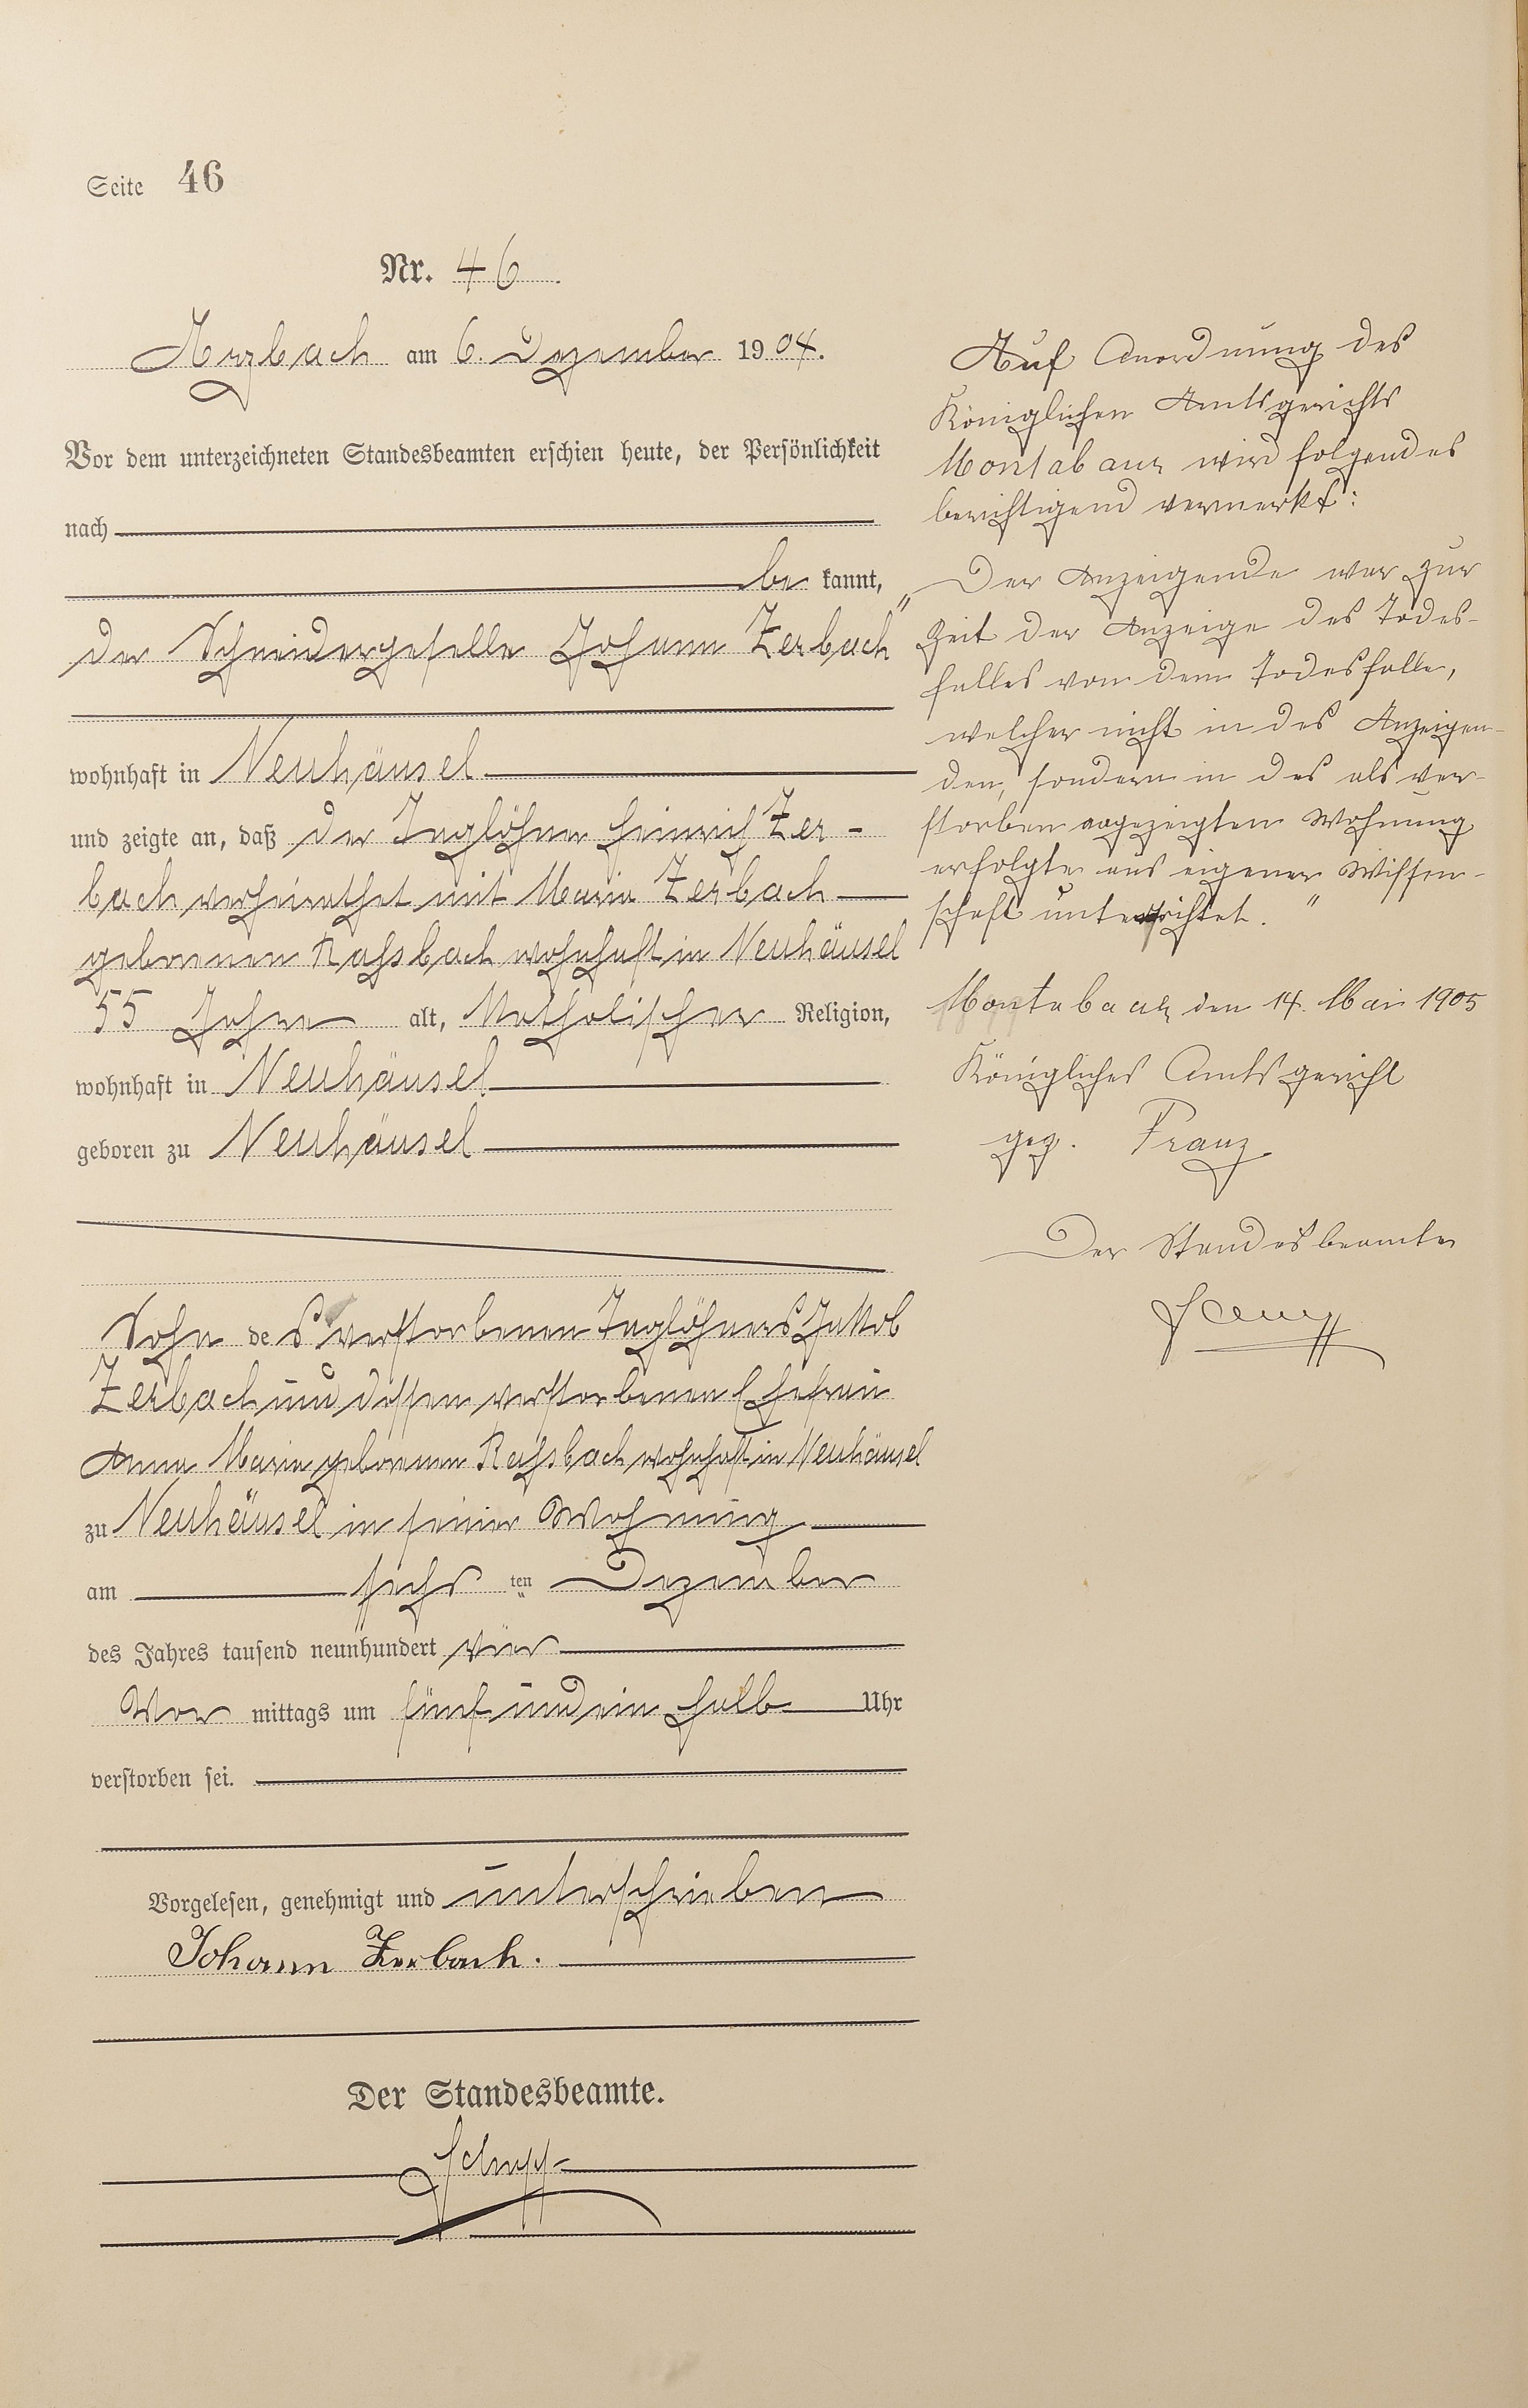 Seite 46
Nr. 46.
Arzbach am 6. Dezember 1904.
Vor dem unterzeichneten Standesbeamten erschien heute, der Persönlichkeit
nach
be kannt,
der Schneidergeselle Johann Zerbach
wohnhaft in Neuhäusel
und zeigte an, daß der Taglöhner Heinrich Zer-
bach verheirathet mit Maria Zerbach
geborenen Rahsbach wohnhaft in Neuhäusel
55 Jahre alt, Katholischer Religion,
wohnhaft in Neuhäusel
geboren zu Neuhäusel
Sohn des verstorbenen Taglöhners Jakob
Zerbach und dessen verstorbenen Ehefrau
Anna Maria geborenen Rahsbach wohnhaft in Neuhäusel
zu Neuhäusel in seiner Wohnung
am sechs ten Dezember
des Jahres tausend neunhundert vier
Vor mittags um fünf und ein halb Uhr
verstorben sei.
Vorgelesen, genehmigt und unterschrieben
Johann Zerbach.
Der Standesbeamte.
Auf Anordnung des
Königlichen Amtsgerichts
Montabaur wird folgendes
berichtigend vermerkt:
„Der Anzeigende war zur
Zeit der Anzeige des Todes-
falles von dem Todesfalle,
welcher nicht in des Anzeigen-
den, sondern in des als ver-
storben angezeigten Wohnung
erfolgte aus eigener Wissen-
schaft unterrichtet."
Montabaur, den 14. Mai 1905
Königliches Amtsgericht
gez. Franz
Der Standesbeamte